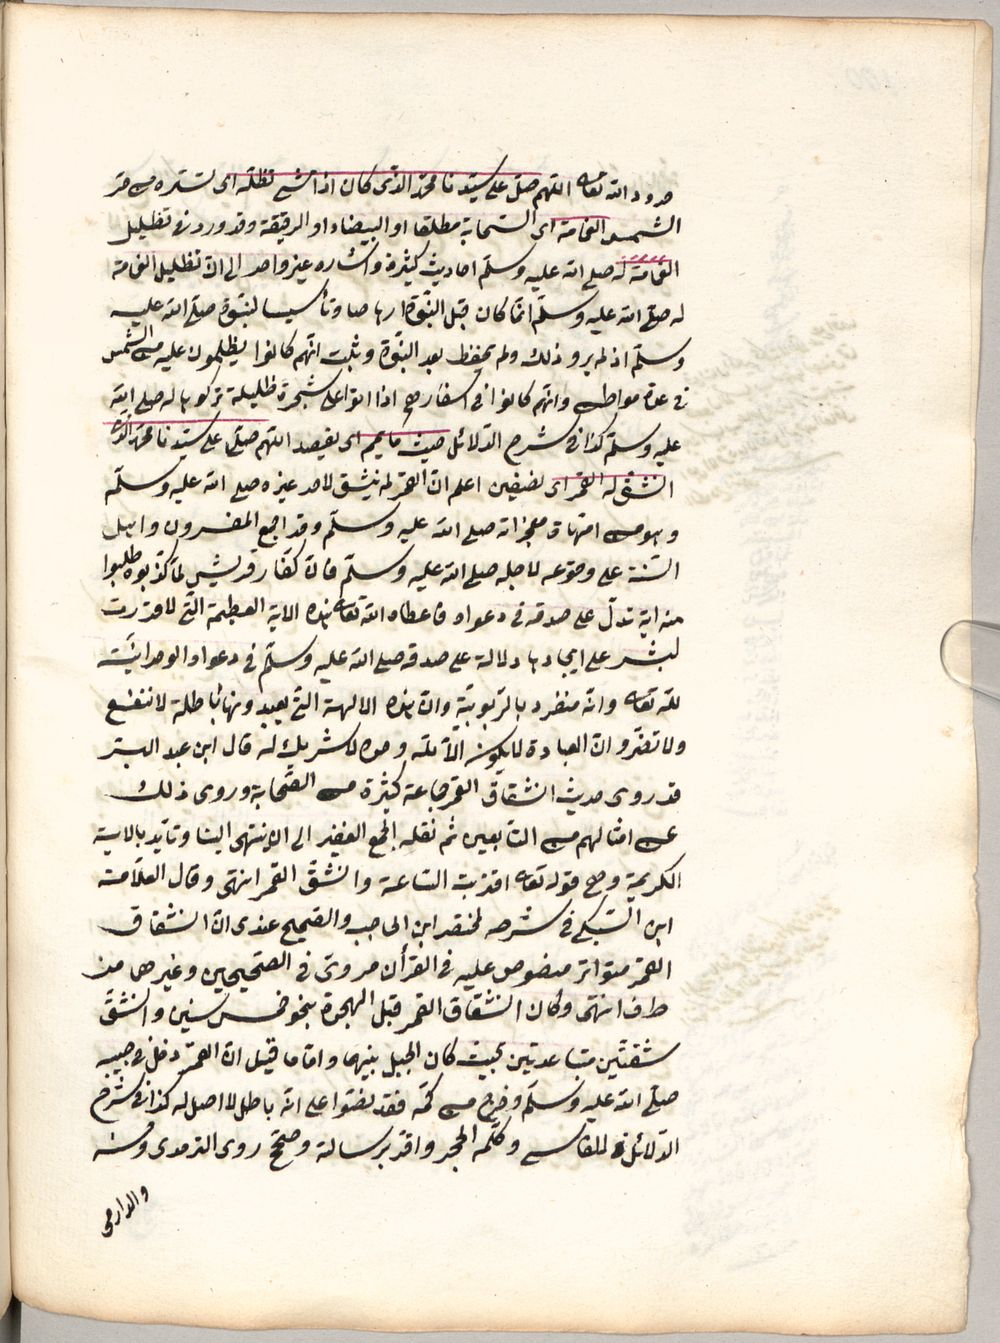 حدود الله تعالى اللهم صل على سيدنا محمد الذى كان اذا مشى تظله اى تستره من حر
الشمس الغمامة اى السحابة مطلقا او البيضاء او الرقيقة وقد ورد فى تظليل
الغمامة له صلى الله عليه وسلم احاديث كثيرة واشار غير واحد الى ان تظليل الغمامة
له صلى الله عليه وسلم انما كان قبل النبوة ارهاصا وتأسيسا لنبوة صلى الله عليه
وسلم اذ لم يرو ذلك ولم يحفظ بعد النبوة وثبت انهم كانوا يظللون عليه من الشمس
فى عدة مواطن وانهم كانوا فى اسفارهم اذا اتوا على شجرة ظليلة تركوها له صلى الله
عليه وسلم كذا فى شرح الدلائل حيث ما يمم اى يقصد اللهم صلى على سيدنا محمد الذى
انشق له القمر اى نصفين اعلم ان القمر لم ينشق لاحد غيره صلى الله عليه وسلم
وهو من امهات معجزاته صلى الله عليه وسلم وقد اجمع المفسرون واهل
السنة على وقوعه لاجله صلى الله عليه وسلم فان كفار قريش لما كذبوه طلبوا
منه اية تدل على صدقه فى دعواه فاعطاه الله تعالى هذه الاية العظيمة التى لا قدرت
لبشر على ايجادها دلالة على صدقه صلى الله عليه وسلم فى دعواه الوحدانية
لله تعالى وانه منفرد بالربوبية وان هذه الالهة التى يعبدونها باطلة لا تنفع
ولا تضر وان العبادة لا يكون الا لله وحده لا شريك له قال ابن عبد البر
قد روى حديث انشقاق القمر جماعة كثيرة من الصحابة وروى ذلك
عن امثالهم من التابعين ثم نقله الجمع الغفير الى ان انتهى الينا وتايد بالاية
الكريمة وهى قوله تعالى اقتربت الساعة وانشق القمر انتهى وقال العلامة
ابن السبكى فى شرحه لمختصر ابن الحاجب والصحيح عندى ان انشقاق
القمر متواتر منصوص عليه فى القرأن مروى فى الصحيحين وغيرهما من
طرف انتهى وكان انشقاق القمر قبل الهجرة بنحو خمس سنين وانشق
شقتين متباعدتين بحيث كان الجبل بينهما واما ما قيل ان القمر دخل فى جيبه
صلى الله عليه وسلم وخرج من كمه فقد نصوا على انه باطل لا اصل له كذا فى شرح
الدلائل للفاسى وكلمه الحجر واقر برسالته وصحح روى الترمذى وحسنه
والدارمى